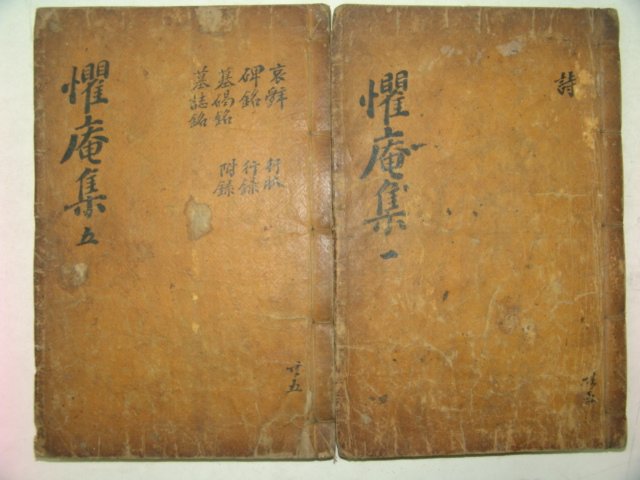 詩
懼庵集 一
哀辭 行狀
碑銘 行錄
墓碣銘 附錄
墓誌銘
懼庵集 五
共五